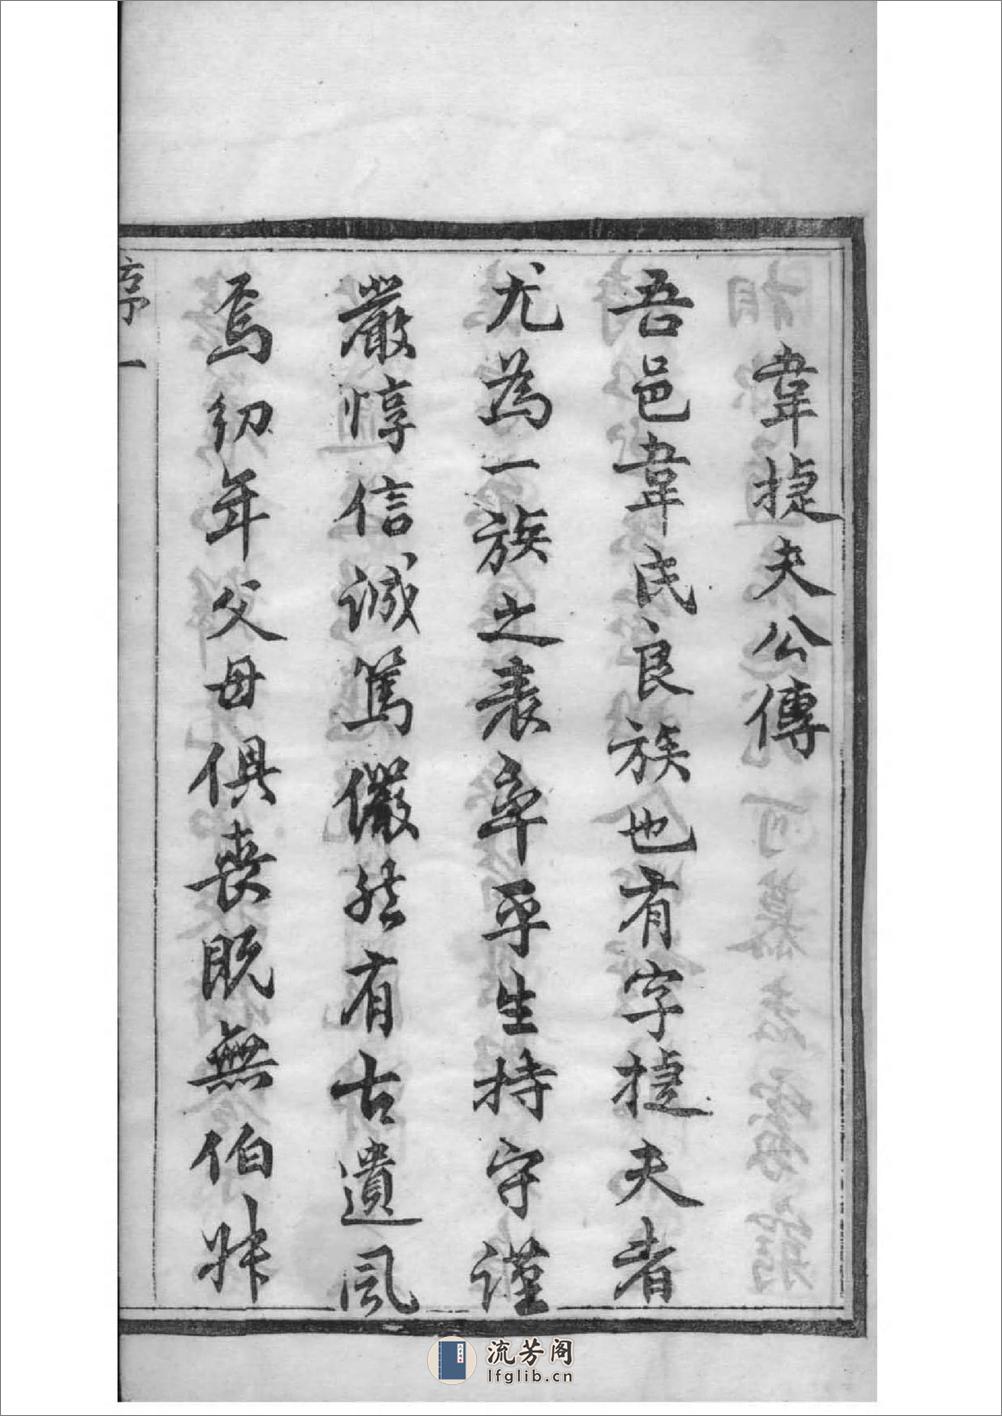 韋捷夫公傳
吾邑韋氏良族也有字捷夫者
尤為一族之表率平生持守謹
嚴惇信誠篤儼然有古遺風
焉幼年父母俱喪既無伯叔
序 一
流芳阁
lfglib.cn